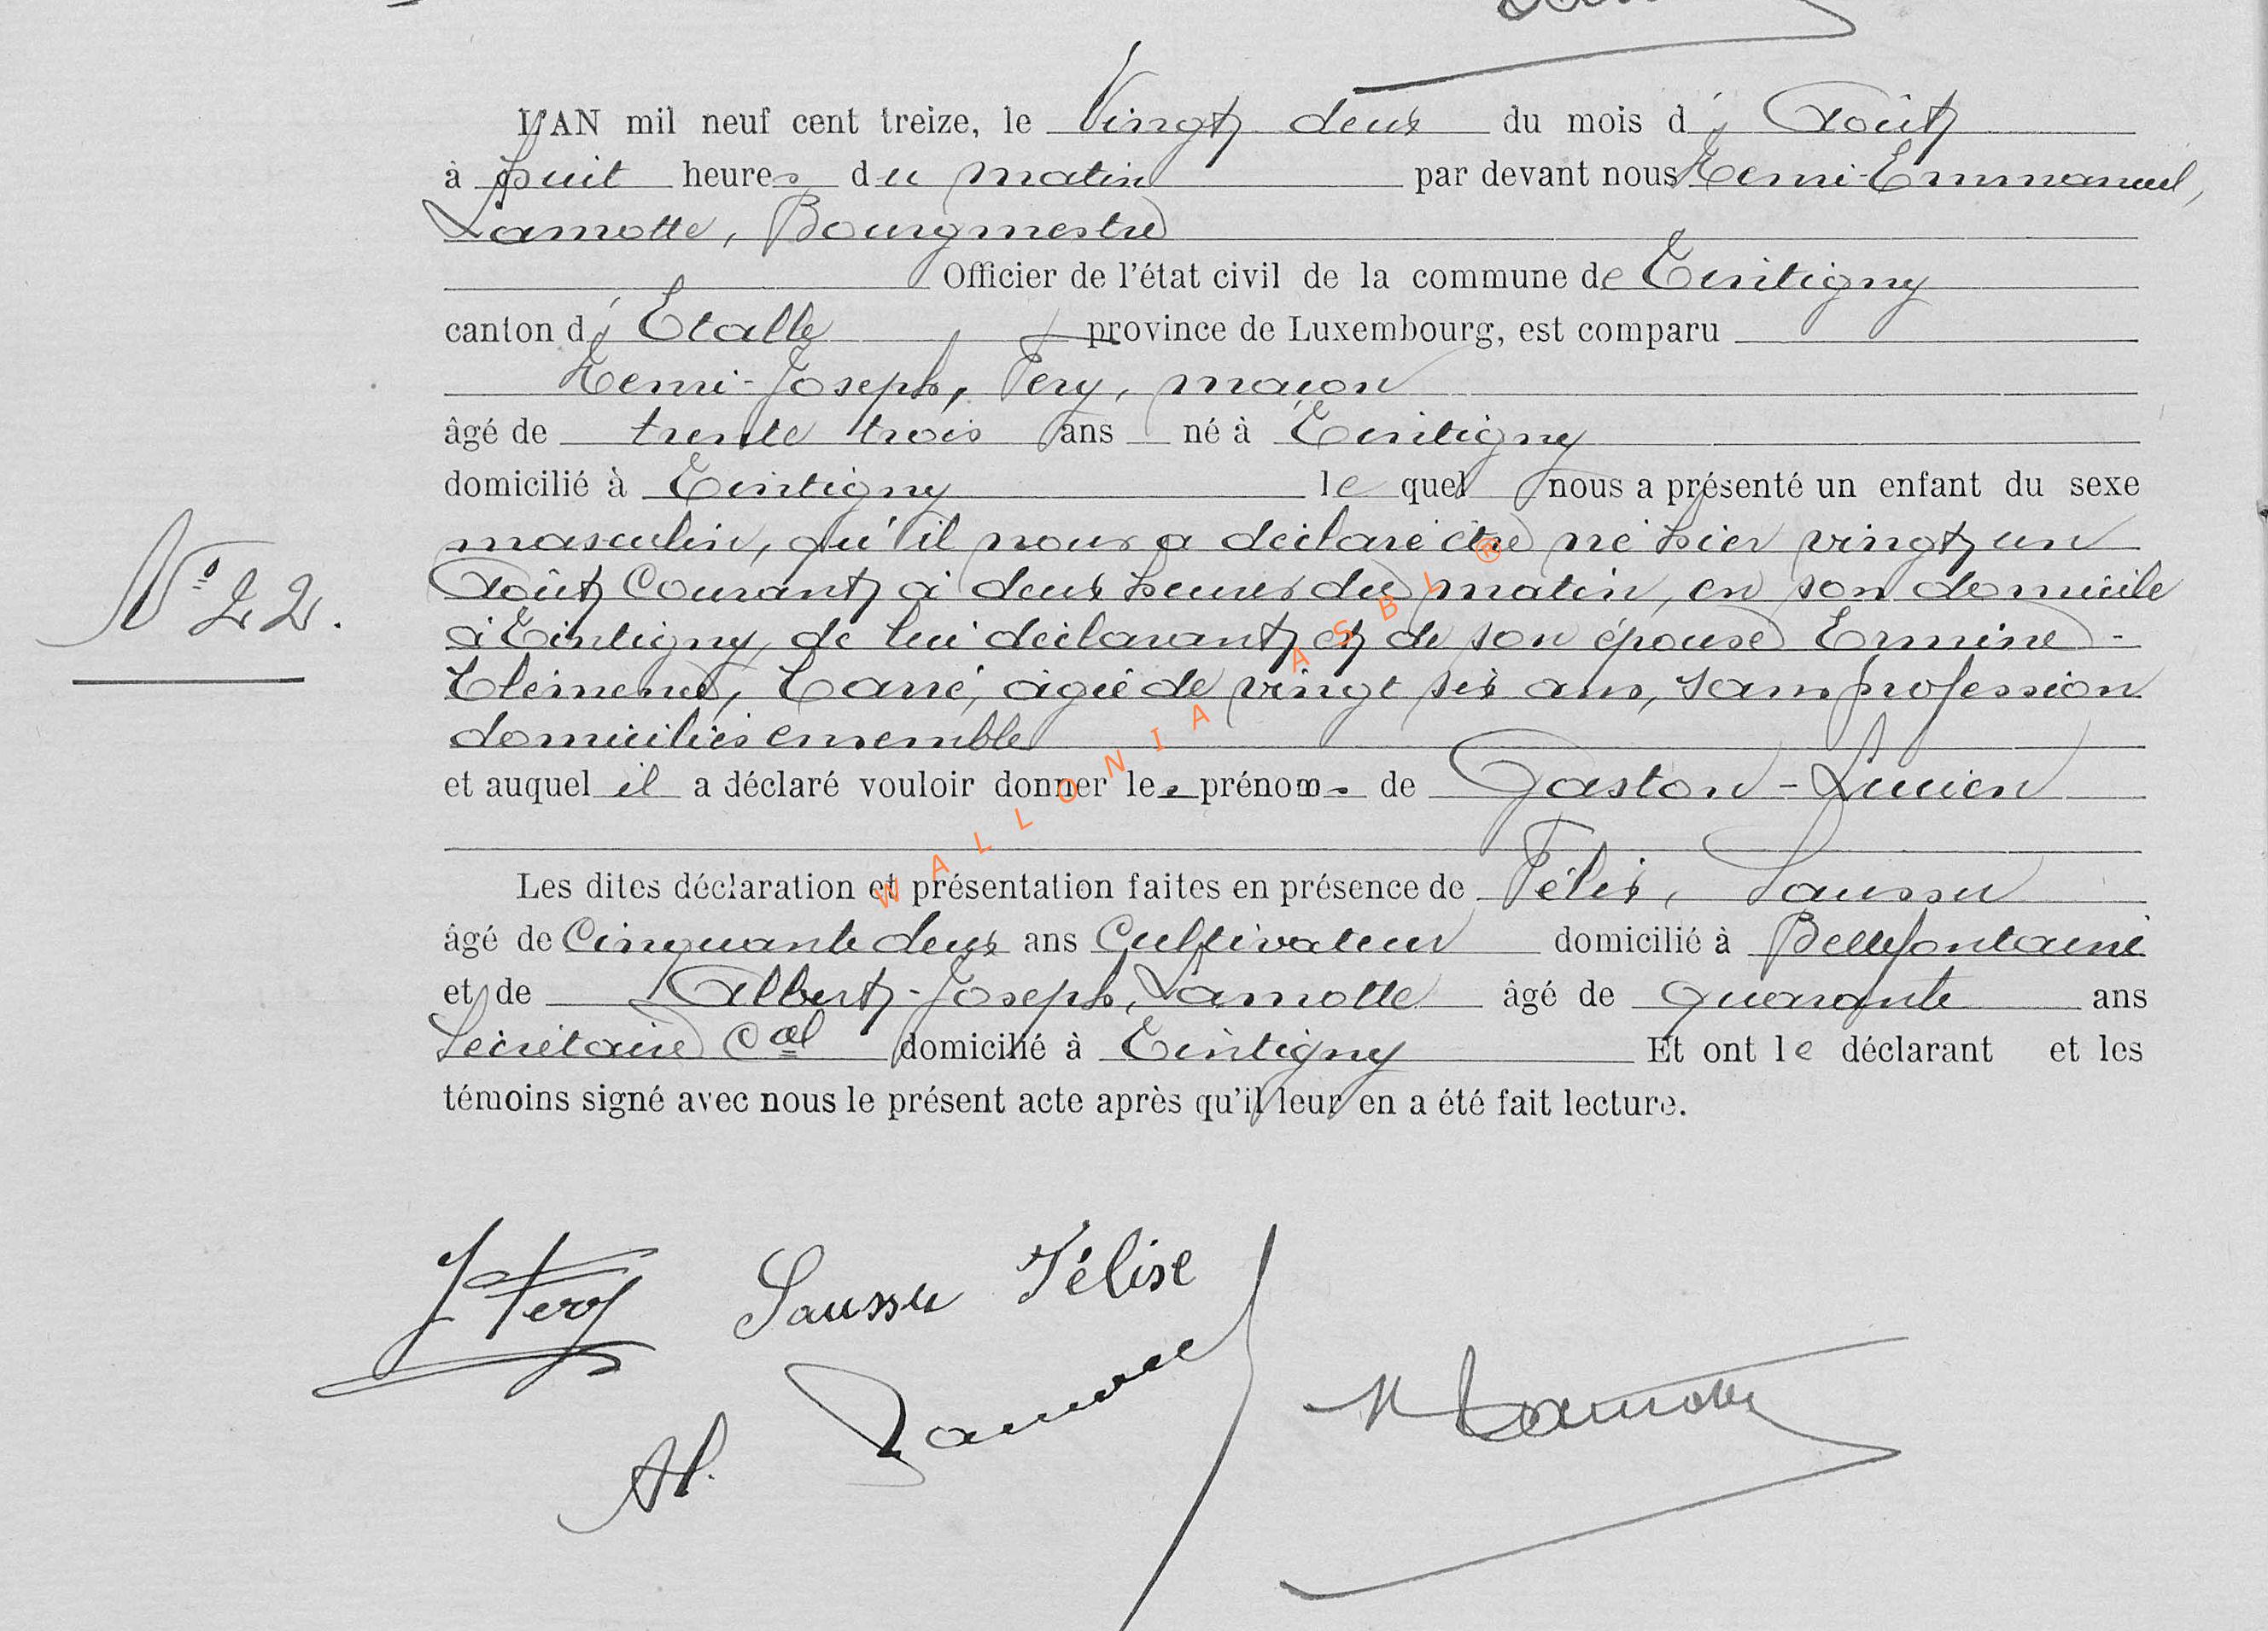 L'AN mil neuf cent treize, le Vingt deux du mois d' Août
à huit heures du matin par devant nous Henri-Emmanuel,
Lamotte, Bourgmestre
Officier de l'état civil de la commune de Tintigny
canton d' Etalle province de Luxembourg, est comparu
Henri-Joseph, Fery, maçon
âgé de trente trois ans né à Tintigny
domicilié à Tintigny le quel nous a présenté un enfant du sexe
masculin, qu'il nous a déclaré être né hier vingt un
Août Courant à deux heures du matin, en son domicile
N° 22.
à Tintigny, de lui déclarant et de son épouse Ermine-
Clémence, Carré, âgée de vingt six ans, sans profession
domiciliés ensemble
et auquel il a déclaré vouloir donner les prénoms de Gaston-Lucien
Les dites déclaration et présentation faites en présence de Félix, Saussu
âgé de Cinquante deux ans Cultivateur domicilié à Bellefontaine
et de Albert-Joseph, Lamotte âgé de quarante ans
Secrétaire Cal domicilié à Tintigny Et ont le déclarant et les
témoins signé avec nous le présent acte après qu'il leur en a été fait lecture.
J Fery Saussu Félixe
Al. Lamotte H Lamotte
WALLONIA ASBL ®